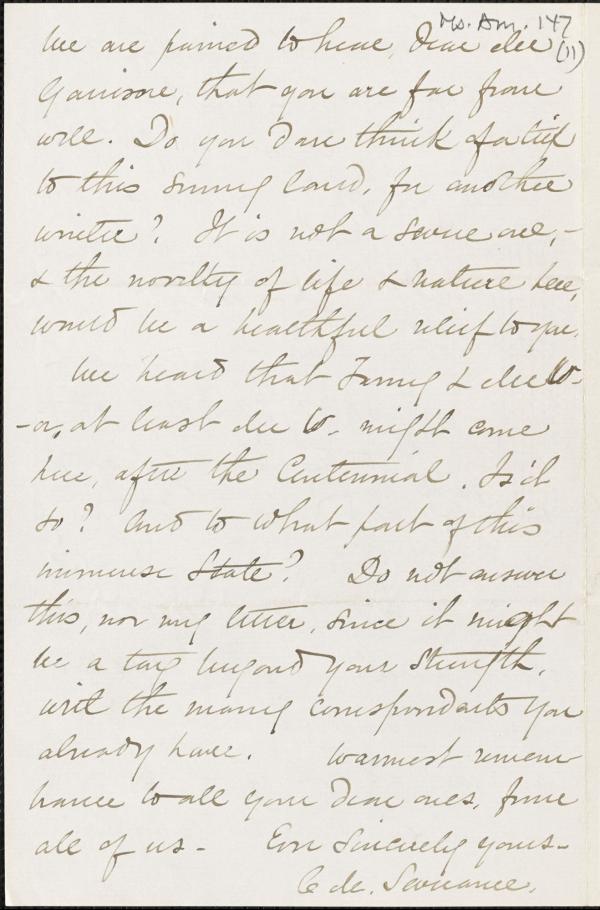 Ms. Am. 147
(11)
We are pained to hear, Dear Mr
Garrison, that you are far from
well. Do you dare think of a trip
to this sunny land, for another
winter? It is not a severe one, -
& the novelty of life & nature here,
would be a healthful relief to you.
We heard that Fanny & Mr W-
- or, at least Mr W- might come
here, after the Centennial. Is it
so? And to what part of this
immense State? Do not answer
this, nor my letter, since it might
be a tax beyond your strength,
with the many correspondents you
already have. Warmest remem
brance to all your dear ones, from
all of us - Ever Sincerely yours -
C. M. Severance.